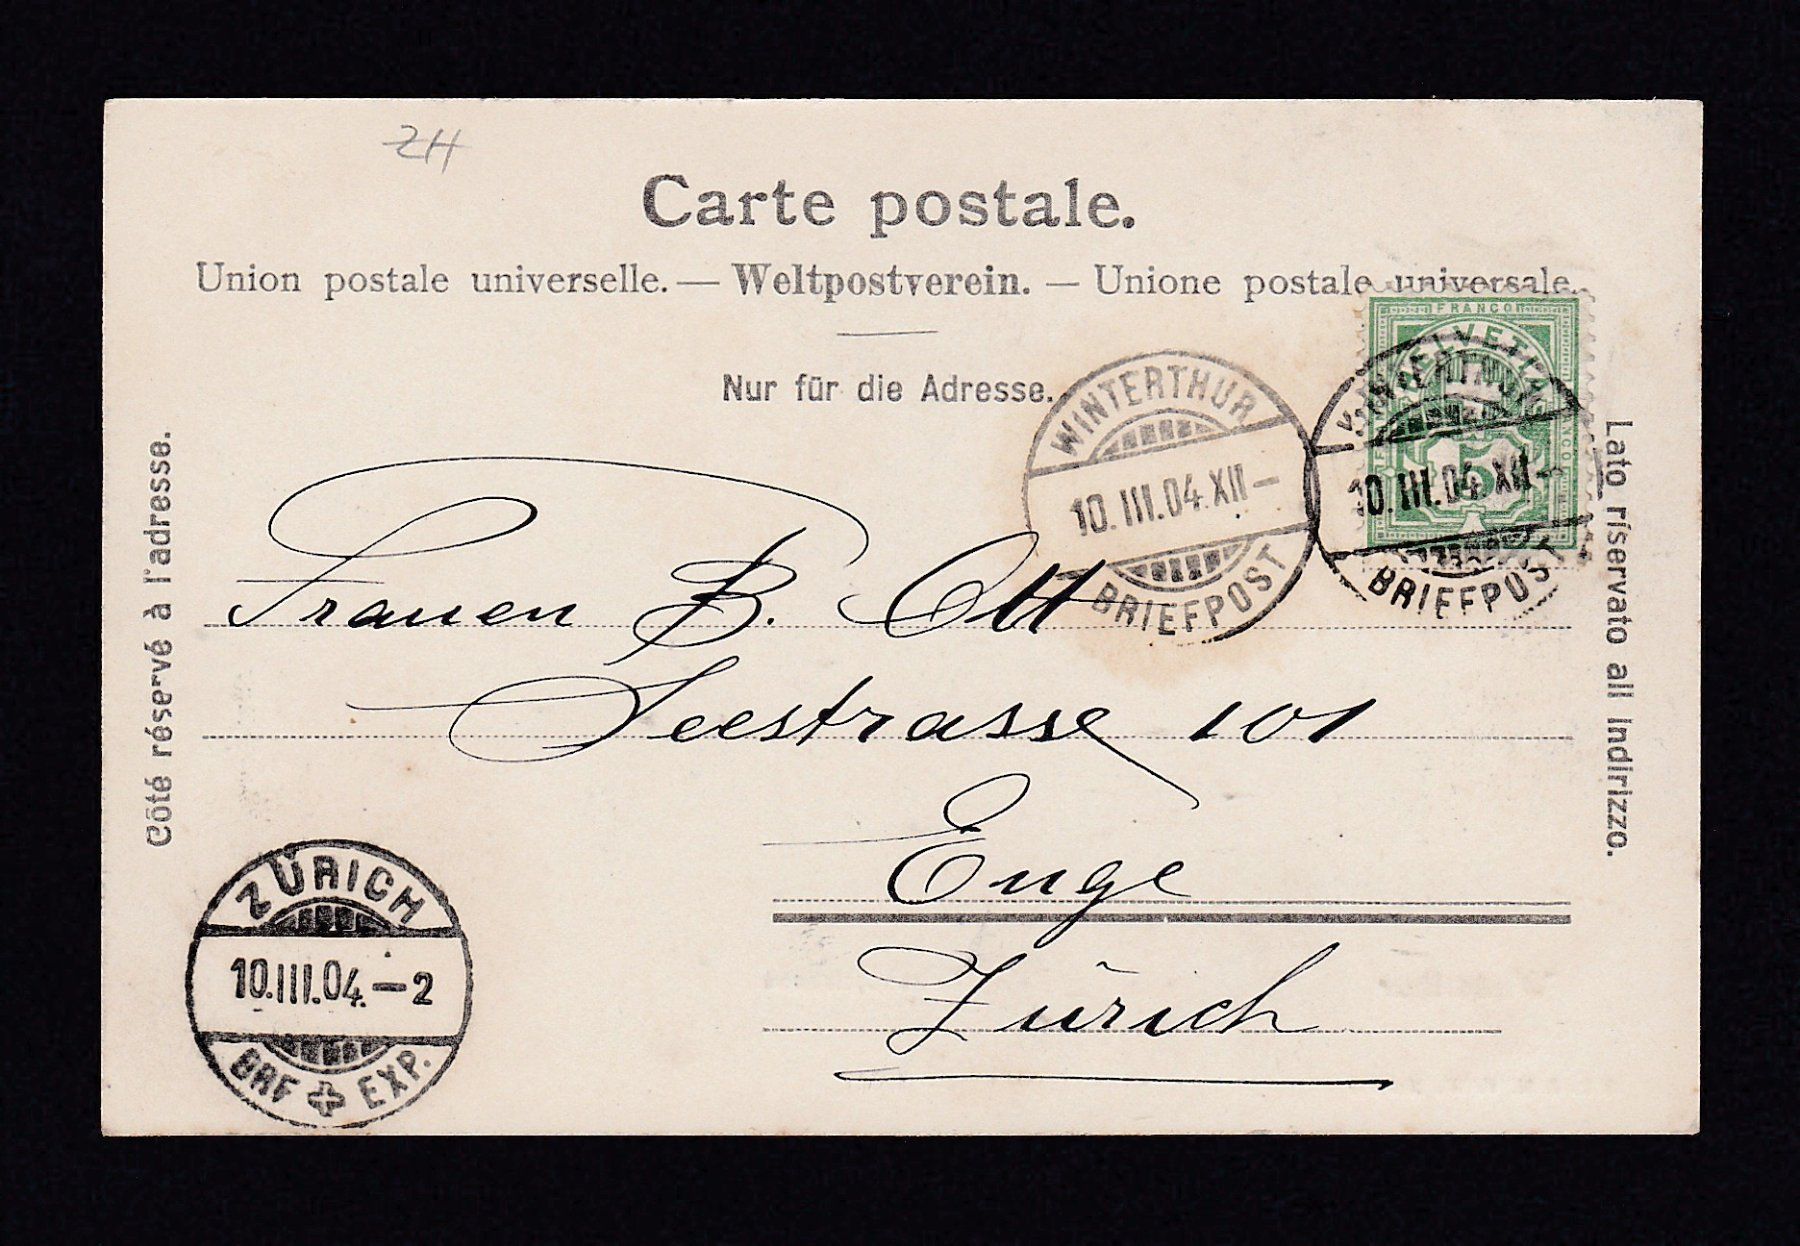 ZH
Carte postale.
Union postale universelle. — Weltpostverein. — Unione postale universale.
Nur für die Adresse.
Côté réservé à l'adresse.
Lato riservato all Indirizzo.
FRANCO
HELVETIA
5
WINTERTHUR
10.III.04.XII–
BRIEFPOST
WINTERTHUR
10.III.04.XII–
BRIEFPOST
Frauen B. Ott
Seestrasse 101
Enge
Zürich
ZÜRICH
10.III.04.–2
BRF EXP.